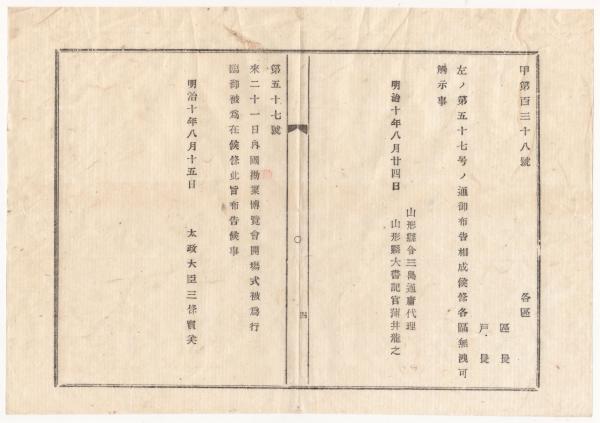 甲第百三十八號
各區
區長
戸長
左ノ第五十七号ノ通御布告相成候條各區無洩可
觸示事
明治十年八月廿四日
山形縣令三島通庸代理
山形縣大書記官薄井龍之
第五十七號
來二十一日內國勸業博覽會開場式被爲行
臨御被爲在候條此旨布告候事
明治十年八月十五日
太政大臣三條實美